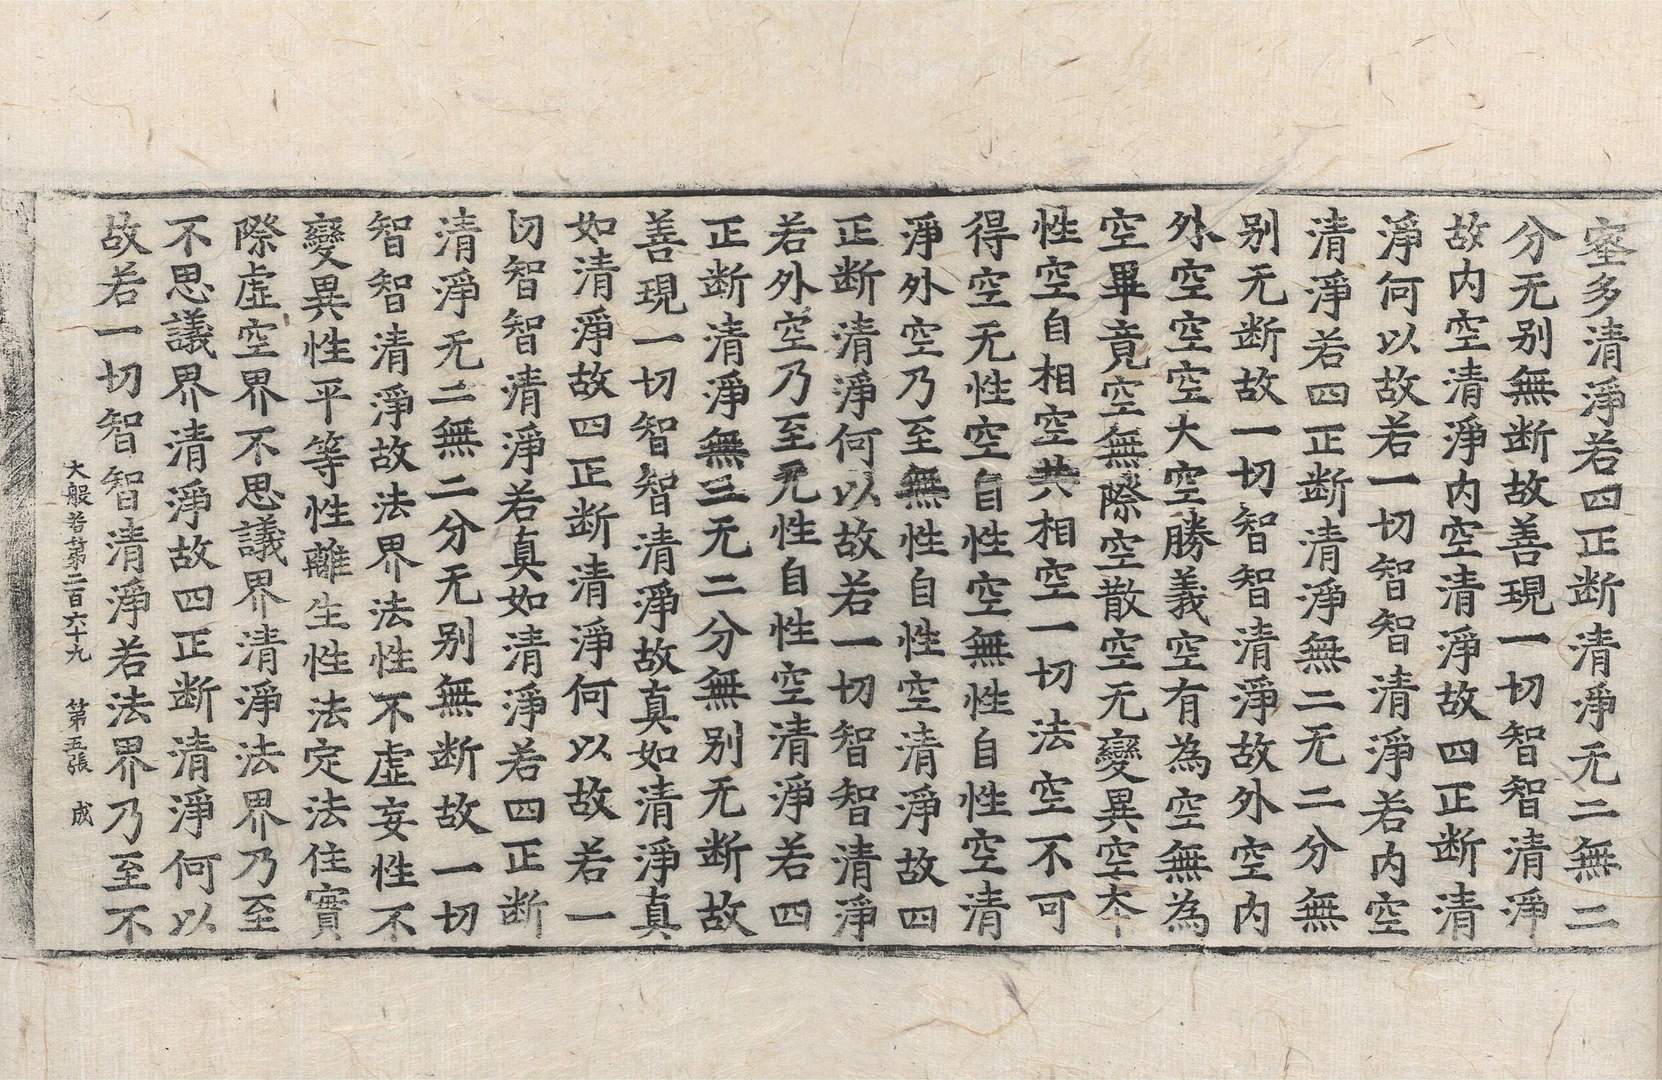 密多清淨若四正断清淨无二無二
分无别無断故善現一切智智清淨
故内空清淨内空清淨故四正断清
淨何以故若一切智智清淨若内空
清淨若四正断清淨無二无二分無
别无断故一切智智清淨故外空内
外空空空大空勝義空有為空無為
空畢竟空無際空散空无變異空本
性空自相空共相空一切法空不可
得空无性空自性空無性自性空清
淨外空乃至無性自性空清淨故四
正断清淨何以故若一切智智清淨
若外空乃至无性自性空清淨若四
正断清淨無二无二分無别无断故
善現一切智智清淨故真如清淨真
如清淨故四正断清淨何以故若一
切智智清淨若真如清淨若四正断
清淨无二無二分无别無断故一切
智智清淨故法界法性不虚妄性不
變異性平等性離生性法定法住實
際虚空界不思議界清淨法界乃至
不思議界清淨故四正断清淨何以
故若一切智智清淨若法界乃至不
大般若第二百六十九 第五張 成